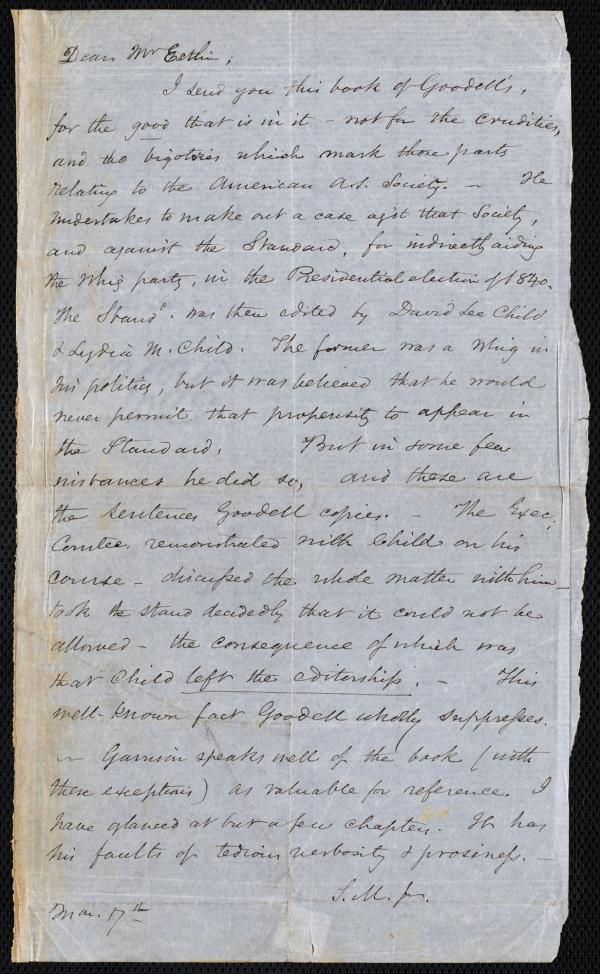 Dear Mr Estlin;
I send you this book of Goodell's,
for the good that is in it - not for the crudities,
and the bigotries which mark those parts
relating to the American A.S. Society. - He
undertakes to make out a case agst that Society,
and against the Standard, for indirectly aiding
the Whig party, in the Presidential election of 1840.
The Standd. was then edited by David Lee Child
& Lydia M. Child. The former was a Whig in
his politics, but it was believed that he would
never permit that propensity to appear in
the Standard. But in some few
instances he did so, and these are
the sentences Goodell copies. - The Exec.
Comtee. remonstrated with Child on his
course - discussed the whole matter with him -
took the stand decidedly that it could not be
allowed - the consequence of which was
that Child left the editorship. - This
well-known fact Goodell wholly suppresses.
- Garrison speaks well of the book (with
these exceptions) as valuable for reference. I
have glanced at but a few chapters. It has
his faults of tedious verbosity & prosiness. -
S.M. Jr.
Mar. 17th